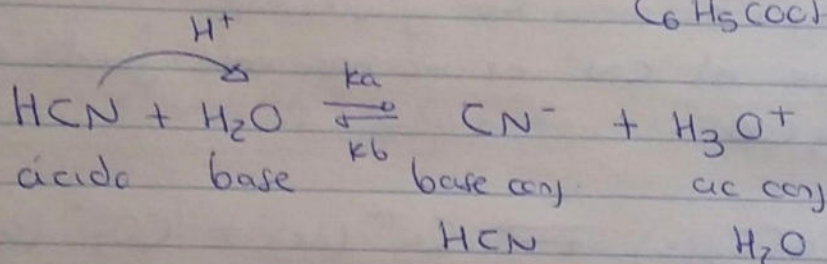 C6H5COCl
H+
HCN + H2O ka ⇌ kb CN- + H3O+
ácido base base conj ac conj
HCN H2O